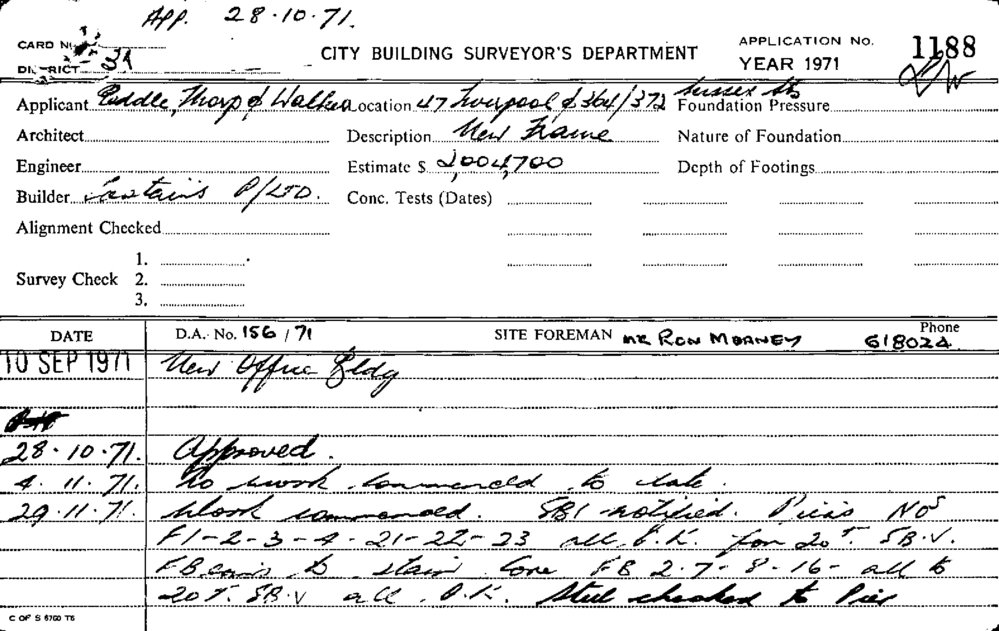 App. 28.10.71.
CARD No.
CITY BUILDING SURVEYOR'S DEPARTMENT
APPLICATION No. 1188
DISTRICT 3A
YEAR 1971
Applicant Peddle, Thorp & Walker Location 47 Liverpool & 364/372 Sussex Sts Foundation Pressure
Architect Description New Frame Nature of Foundation
Engineer Estimate $ 2,004,700 Depth of Footings
Builder P/LTD. Conc. Tests (Dates)
Alignment Checked
1.
Survey Check 2.
3.
DATE D.A. No. 156/71 SITE FOREMAN MR RON MORNEY Phone 618024
10 SEP 1971 New Office Bldg
28.10.71. Approved.
4.11.71. No work commenced to date.
29.11.71. Work commenced. SBI notified. Piers Nos
F1-2-3-4-21-22-23 all O.K. for 20T. S.B.V.
F Beams to stair core FB 2-7-8-16- all to
20T. S.B.V all O.K. Steel checked to Pier
C OF S 6760 T6